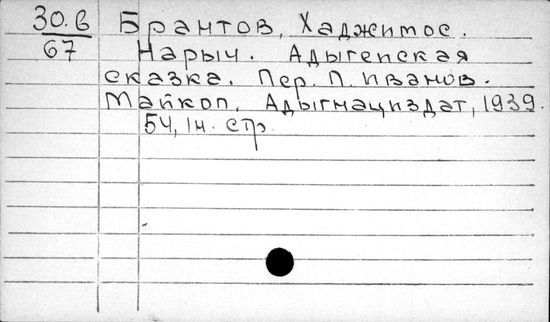 30.6 Брантов, Хаджитос.
67 Нарыч. Адыгейская
сказка. Пер. П. Иванов.
Майкоп, Адыгнациздат, 1939.
54, 1н. стр.